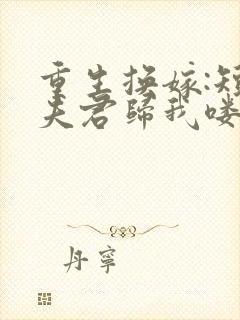 重生换嫁:短
夫君归我喽
丹宁